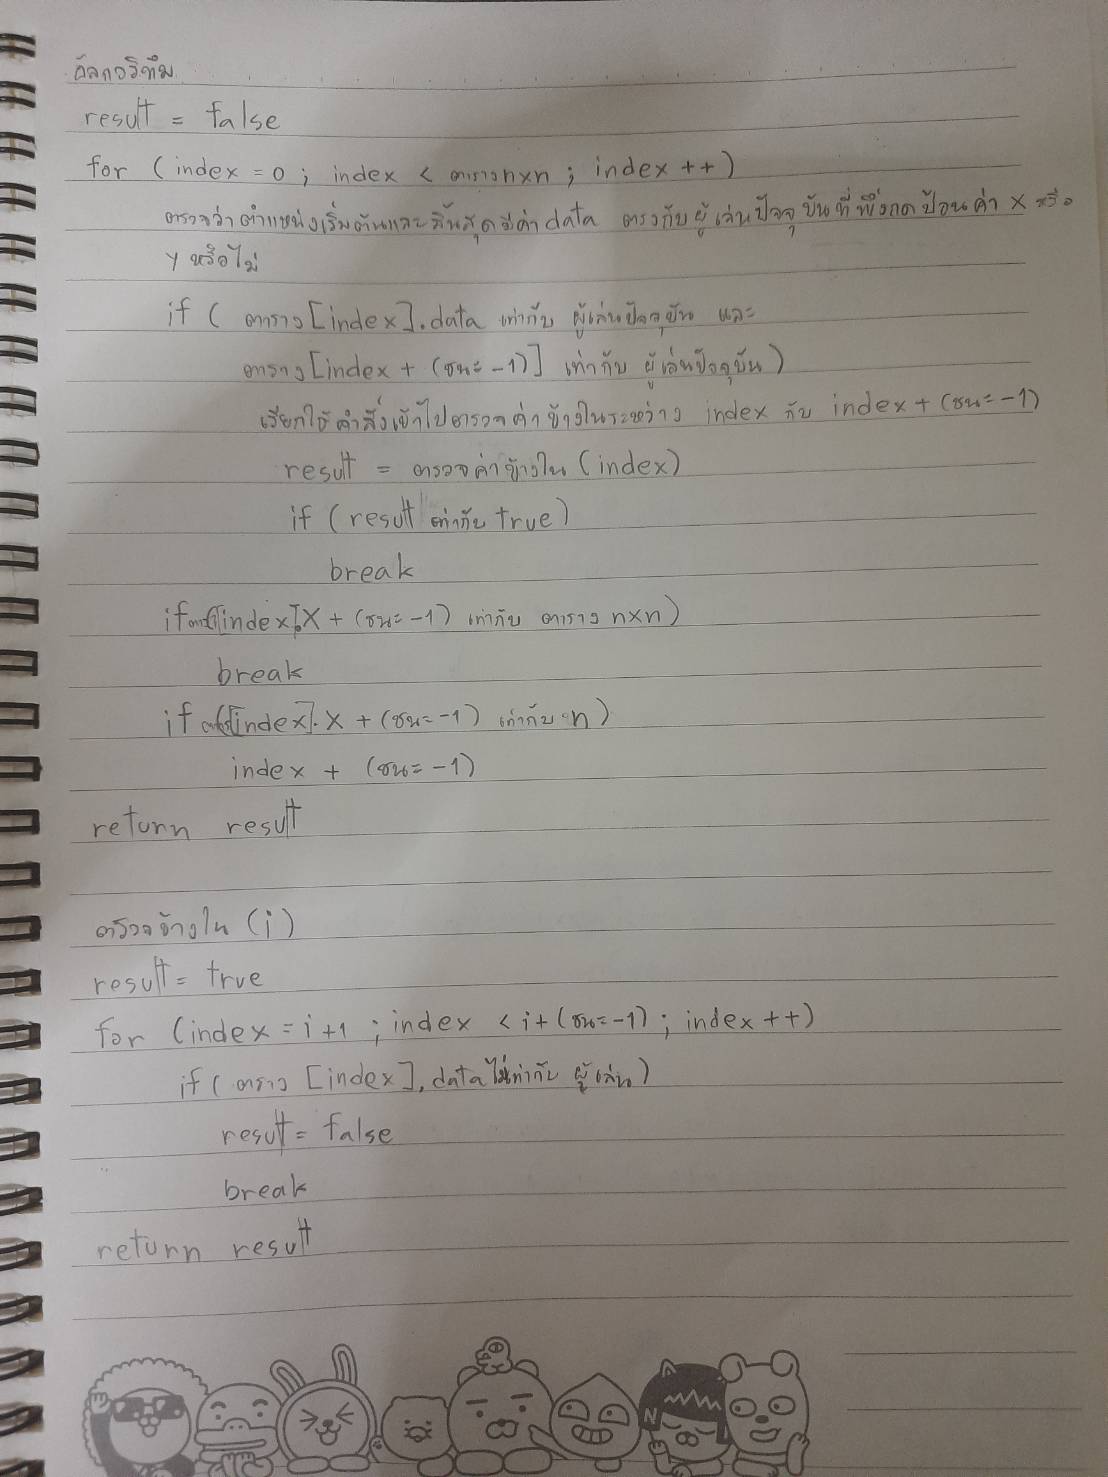 อัลกอริทึม
result = false
for (index = 0 ; index < ตารางnxn ; index ++)
ตรวจว่าตำแหน่งเริ่มต้นและสิ้นสุดมีค่า data ตรงกับผู้เล่นปัจจุบันที่พึ่งกดป้อนค่า X หรือ
Y หรือไม่
if ( ตาราง [index].data เท่ากับ ผู้เล่นปัจจุบัน และ
ตาราง [index + (ชนะ -1)] เท่ากับ ผู้เล่นปัจจุบัน)
เรียกใช้คำสั่งเข้าไปตรวจค่าข้างในระหว่าง index กับ index + (ชนะ -1)
result = ตรวจค่าข้างใน (index)
if (result เท่ากับ true)
break
if ตาราง([index].X + (ชนะ -1) เท่ากับ ตาราง nxn)
break
if ตาราง([index].X + (ชนะ -1) เท่ากับ n)
index + (ชนะ -1)
return result
ตรวจข้างใน (i)
result = true
for (index = i+1 ; index < i + (ชนะ -1) ; index ++)
if ( ตาราง [index].data ไม่เท่ากับ ผู้เล่น)
result = false
break
return result
N